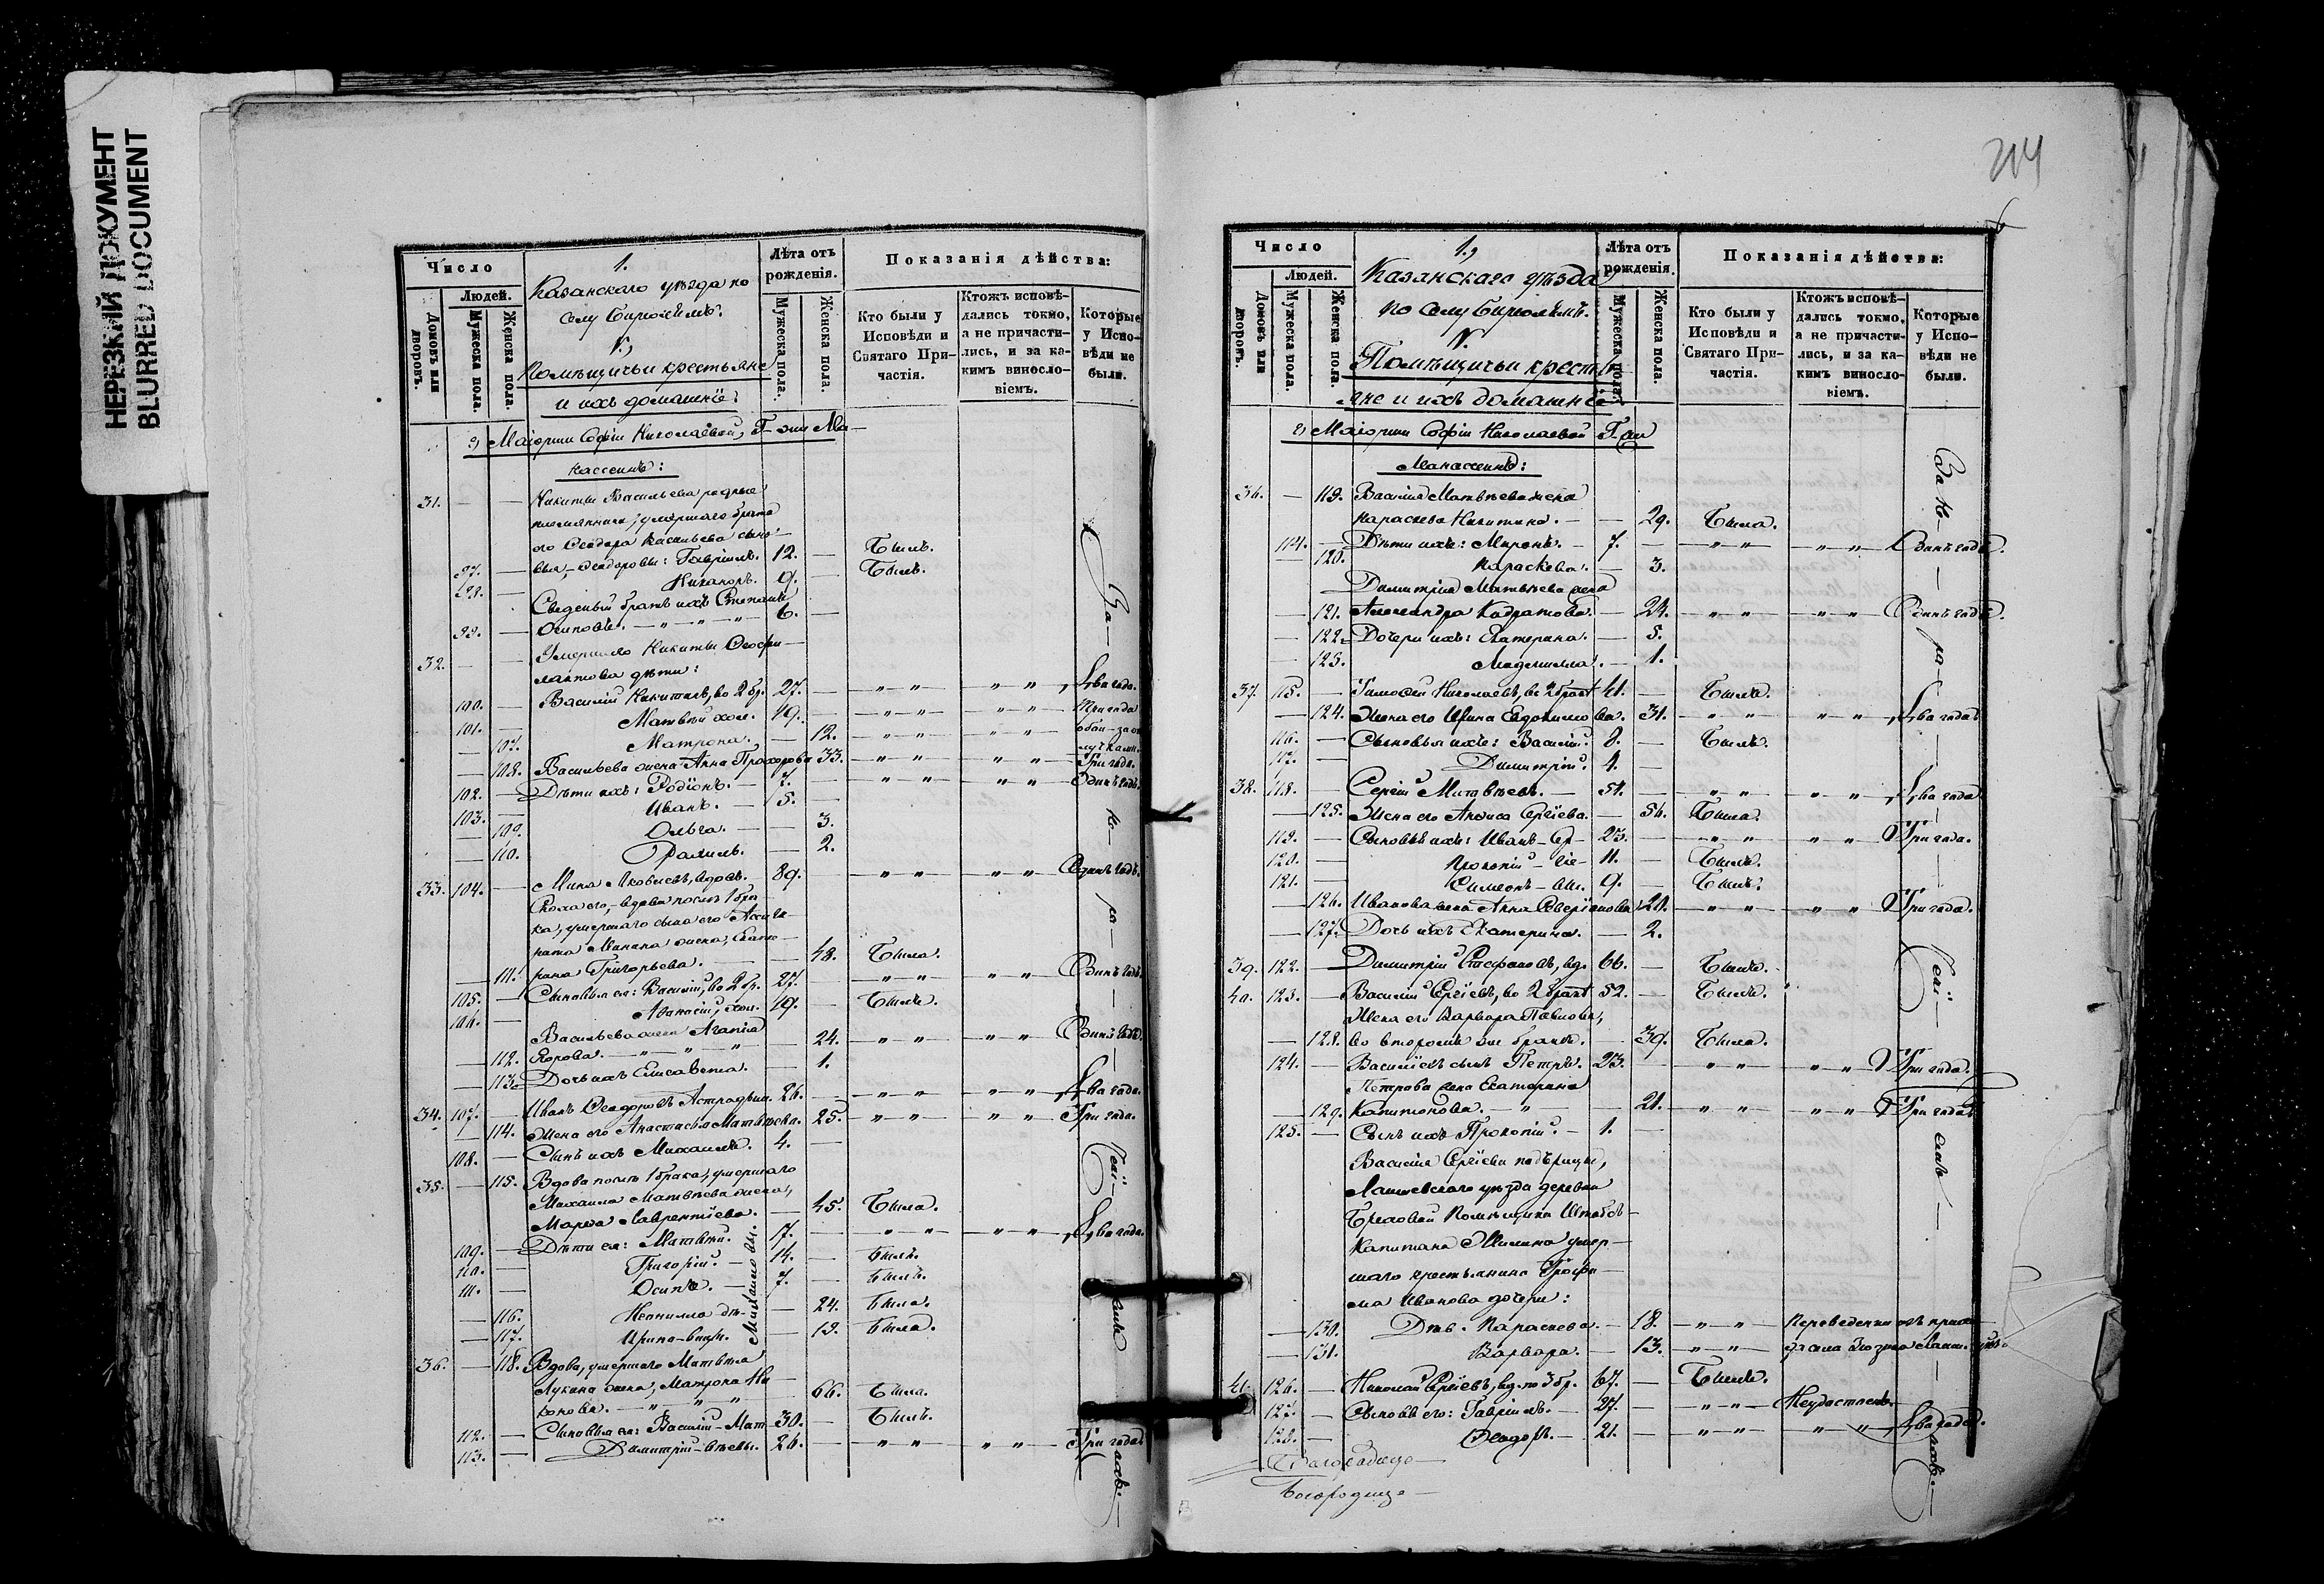 НЕРЕЗКИЙ ДОКУМЕНТ
BLURRED DOCUMENT
Число
1.
Лѣта отъ рожденія.
Показанія дѣйства:
Людей.
Домовъ или дворовъ.
Мужеска пола.
Женска пола.
Казанскаго уѣзда по
селу
V.,
Помѣщичьи крестьяне
и ихъ домашніе:
Мужеска пола.
Женска пола.
Кто были у Исповѣди и Святаго Причастія.
Ктожъ исповѣдались токмо, а не причастились, и за какимъ винословіемъ.
Которые у Исповѣди не были.
2, Маіорши Софіи Николаевой, Г-жи Ма-
нассеинъ:
31. — — Никиты Васильева родные
племянники, умершаго брата
его Ѳеодора Васильева сыно-
97. — вья, Ѳеодоровы: Гавріилъ. 12. — Былъ.
98. — Никаноръ. 9. — Былъ.
Сведеный братъ ихъ Степанъ
99. — Осиповъ. — " — " — " 6. —
32. — — Умершаго Никиты Ѳеофи-
лактова дѣти:
100. — Василій Никитинъ, во 2 бр. 27. — " " — " " Два года.
101. — Матвѣй хол. 19. — " " — " " Три года
— 107. Матрона. — 12. — " " — " "
— 108. Васильева жена Анна Прохорова 33. — " " — " " Три года.
102. — Дѣти ихъ: Родіонъ. — 7. — " " — " " Одинъ годъ.
103. — Иванъ. — 5. —
— 109. Ольга. — — 3.
— 110. — 2.
33. 104. — Мина Яковлевъ, вдовъ. 89. — " " — " " Одинъ годъ.
Сноха его, вдова послѣ 1 бра-
ка, умершаго сына его
Минина жена, Екате-
— 111. рина Григорьева. — — 48. Была.
105. — Сыновья ея: Василій, во 2 бр. 27. — " " — " " Одинъ годъ.
106. — Аѳанасій, хол. 19. — Былъ.
Васильева жена Агапія
— 112. Егорова. — " — " — " — 24. — " " — " " Одинъ годъ.
— 113. Дочь ихъ Елисавета. — — 1.
34. 107. — Иванъ Ѳеодоровъ 26. — " " — " " Два года.
— 114. Жена его Анастасія Матвѣева. 25. " " — " " Три года.
108. — Сынъ ихъ Михаилъ. 4. —
35. — 115. Вдова послѣ 1 брака, умершаго
Михаила Матвѣева жена,
Марѳа Лаврентіева. — 45. Была.
109. — Дѣти ея: Матвѣй. 17. — " " — " " Два года.
110. — Григорій. — 14. — Былъ.
111. — Осипъ. — 7. — Былъ.
— 116. Неонилла дѣ- — 24. Была.
— 117. Ирина — вицы. — 19. Была.
36. — 118. Вдова, умершаго Матвѣя
Лукина жена, Матрона Ни-
конова. — " — " — " 66. Была.
112. — Сыновья ея: Василій — Мат- 30. — Былъ.
113. — Димитрій — вѣевы. 26. — " " — " " Три года.
214
Число
1.,
Лѣта отъ рожденія.
Показанія дѣйства:
Людей.
Домовъ или дворовъ.
Мужеска пола.
Женска пола.
Казанскаго уѣзда
по селу
V.
Помѣщичьи кресть-
яне и ихъ домашніе
Мужеска пола.
Женска пола.
Кто были у Исповѣди и Святаго Причастія.
Ктожъ исповѣдались токмо, а не причастились, и за какимъ винословіемъ.
Которые у Исповѣди не были.
2, Маіорши Софіи Николаевой Г-жи
Манассеинъ:
36. — 119. Василія Матвѣева жена
Параскева Никитина. — — 29. Была.
114. — Дѣти ихъ: Миронъ. — 7. — " " — " " Одинъ годъ.
— 120. Параскева. — 3.
Димитрія Матвѣева жена
— 121. Александра Кодратова. — 24. " " — " " Одинъ годъ.
— 122. Дочери ихъ: Екатерина. — 5.
— 123. — 1.
37. 115. — Тимоѳей Николаевъ, во 2 бракѣ 41. — Былъ.
— 124. Жена его Ирина Евдокимова. 31. — " " — " " Два года
116. — Сыновья ихъ: Василій. 8. — Былъ.
117. — Димитрій. 1. —
38. 118. — Сергій Матвѣевъ. — 51. — " " — " " Два года
— 125. Жена его Анѳиса Сергіева. — 56. Была.
119. — Сыновья ихъ: Иванъ — Сер- 23. — " " — " " Три года.
120. — Прокопій — гіе- 11. — Былъ.
121. — Симеонъ — вы. 9. — Былъ.
— 126. Иванова жена Анна Северіанова 20. — " " — " " Три года.
— 127. Дочь ихъ Екатерина. — 2.
39. 122. — Димитрій Стефановъ, вд. 66. — Былъ.
40. 123. — Василій Сергіевъ, во 2 бракѣ 52. — Былъ.
Жена его Варвара Павлова,
— 128. во второмъ же бракѣ. 39. Была.
124. — Василіевъ сынъ Петръ. 23. — " " — " " Три года.
Петрова жена Екатерина
— 129. Капитонова. — " — 21. — " " — " " Три года
125. — Сынъ ихъ Прокопій. — 1. —
Василія Сергіева падчерицы,
Лаишевскаго уѣзда деревни
помѣщика Штабсъ-
Капитана умер-
шаго крестьянина Троѳи-
ма Иванова дочери:
— 130. Дѣв. Параскева. — 18. — " "
— 131. Варвара. — 13. — " "
41. 126. — Николай Сергіевъ, вд. по 3 бр. 67. — Былъ.
127. — Сыновья его: Гавріилъ. — 27. — " " Неудостоенъ.
128. — Ѳеодоръ. — 21. — " " — " " Два года.
Богородице
Богородице